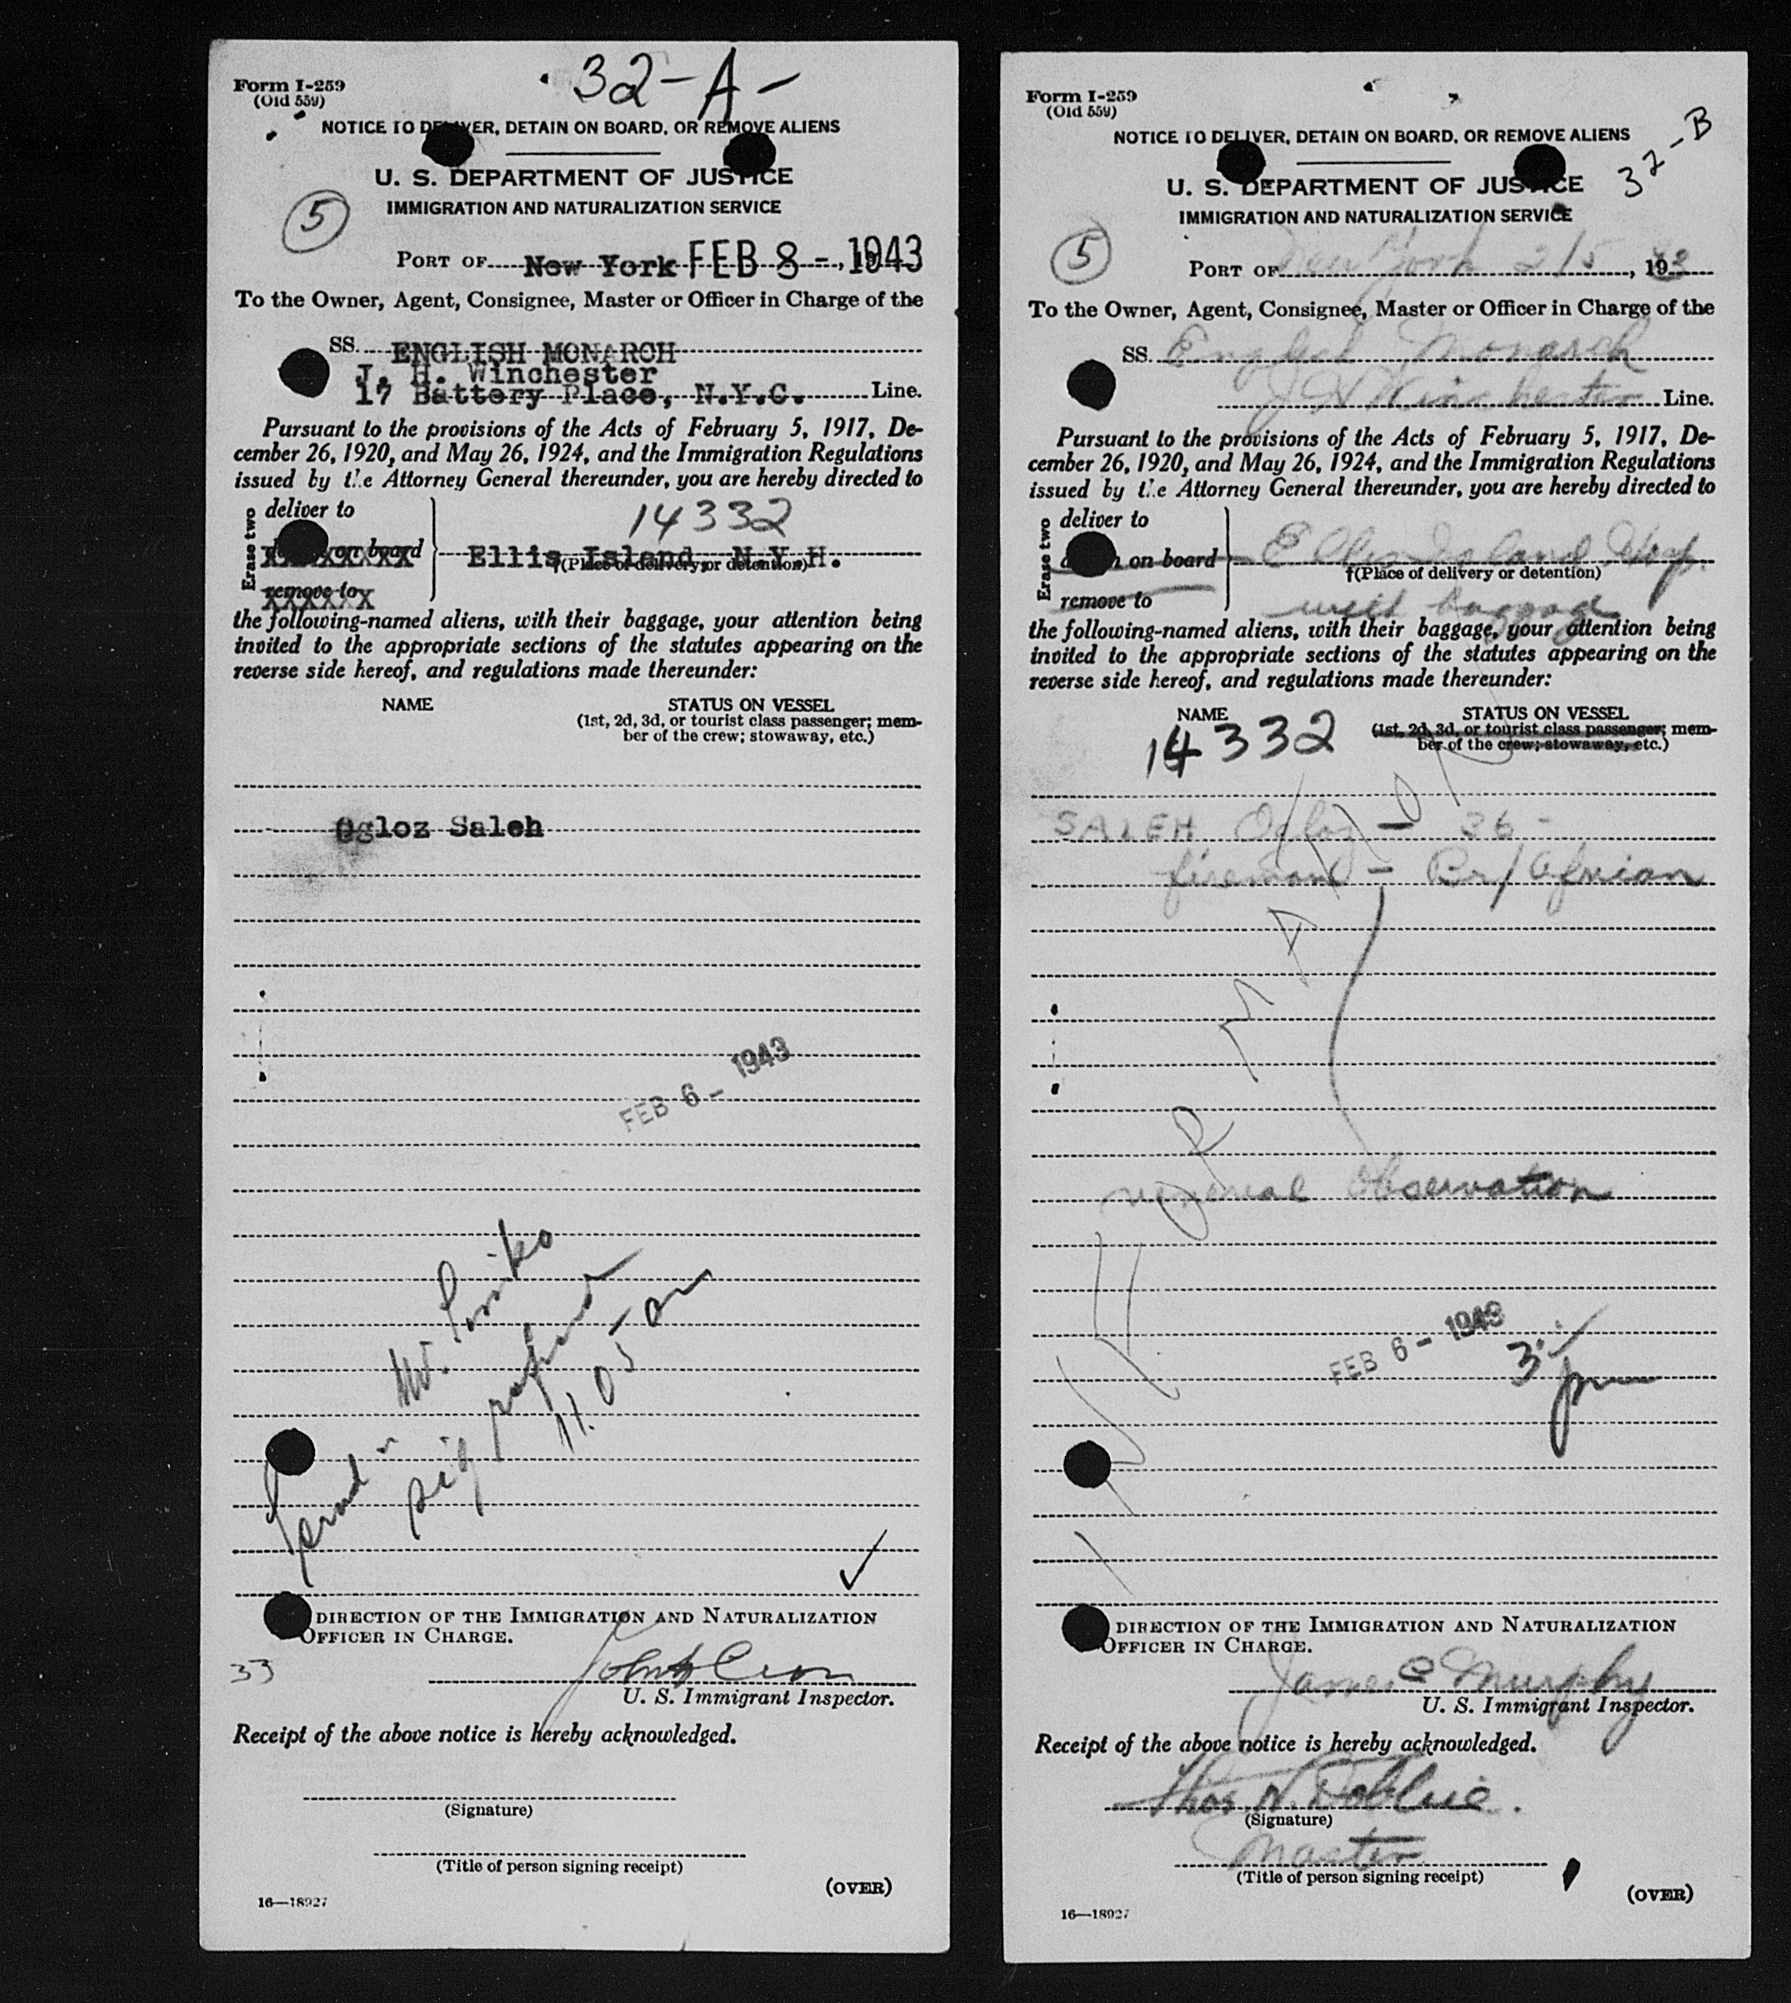 32-A-
Form I-259
(Old 559)
NOTICE TO DELIVER, DETAIN ON BOARD, OR REMOVE ALIENS
U. S. DEPARTMENT OF JUSTICE
IMMIGRATION AND NATURALIZATION SERVICE
5
PORT OF New York FEB 8 - 1943
To the Owner, Agent, Consignee, Master or Officer in Charge of the
SS. ENGLISH MONARCH
J. H. Winchester
17 Battery Place, N.Y.C. Line.
Pursuant to the provisions of the Acts of February 5, 1917, De-
cember 26, 1920, and May 26, 1924, and the Immigration Regulations
issued by the Attorney General thereunder, you are hereby directed to
Erase two
deliver to
14332
on board
Ellis Island, N.Y.H.
†(Place of delivery or detention)
remove to
the following-named aliens, with their baggage, your attention being
invited to the appropriate sections of the statutes appearing on the
reverse side hereof, and regulations made thereunder:
NAME STATUS ON VESSEL
(1st, 2d, 3d, or tourist class passenger; mem-
ber of the crew; stowaway, etc.)
Ogloz Saleh
FEB 6 - 1943
Mr.
sig refused
11.05 am
DIRECTION OF THE IMMIGRATION AND NATURALIZATION
OFFICER IN CHARGE.
33
U. S. Immigrant Inspector.
Receipt of the above notice is hereby acknowledged.
(Signature)
(Title of person signing receipt)
(OVER)
16—18927
Form I-259
(Old 559)
NOTICE TO DELIVER, DETAIN ON BOARD, OR REMOVE ALIENS
32-B
U. S. DEPARTMENT OF JUSTICE
IMMIGRATION AND NATURALIZATION SERVICE
5
PORT OF New York 2/5, 1943
To the Owner, Agent, Consignee, Master or Officer in Charge of the
SS. English Monarch
J H Winchester Line.
Pursuant to the provisions of the Acts of February 5, 1917, De-
cember 26, 1920, and May 26, 1924, and the Immigration Regulations
issued by the Attorney General thereunder, you are hereby directed to
Erase two
deliver to
on board
Ellis Island
†(Place of delivery or detention)
remove to
with baggage
the following-named aliens, with their baggage, your attention being
invited to the appropriate sections of the statutes appearing on the
reverse side hereof, and regulations made thereunder:
NAME STATUS ON VESSEL
14332
(1st, 2d, 3d, or tourist class passenger; mem-
ber of the crew; stowaway, etc.)
SALEH Ogloz - 36 -
fireman - Br/African
venereal Observation
FEB 6 - 1943
pm
DIRECTION OF THE IMMIGRATION AND NATURALIZATION
OFFICER IN CHARGE.
James C Murphy
U. S. Immigrant Inspector.
Receipt of the above notice is hereby acknowledged.
Thos. N.
(Signature)
Master
(Title of person signing receipt)
(OVER)
16—18927